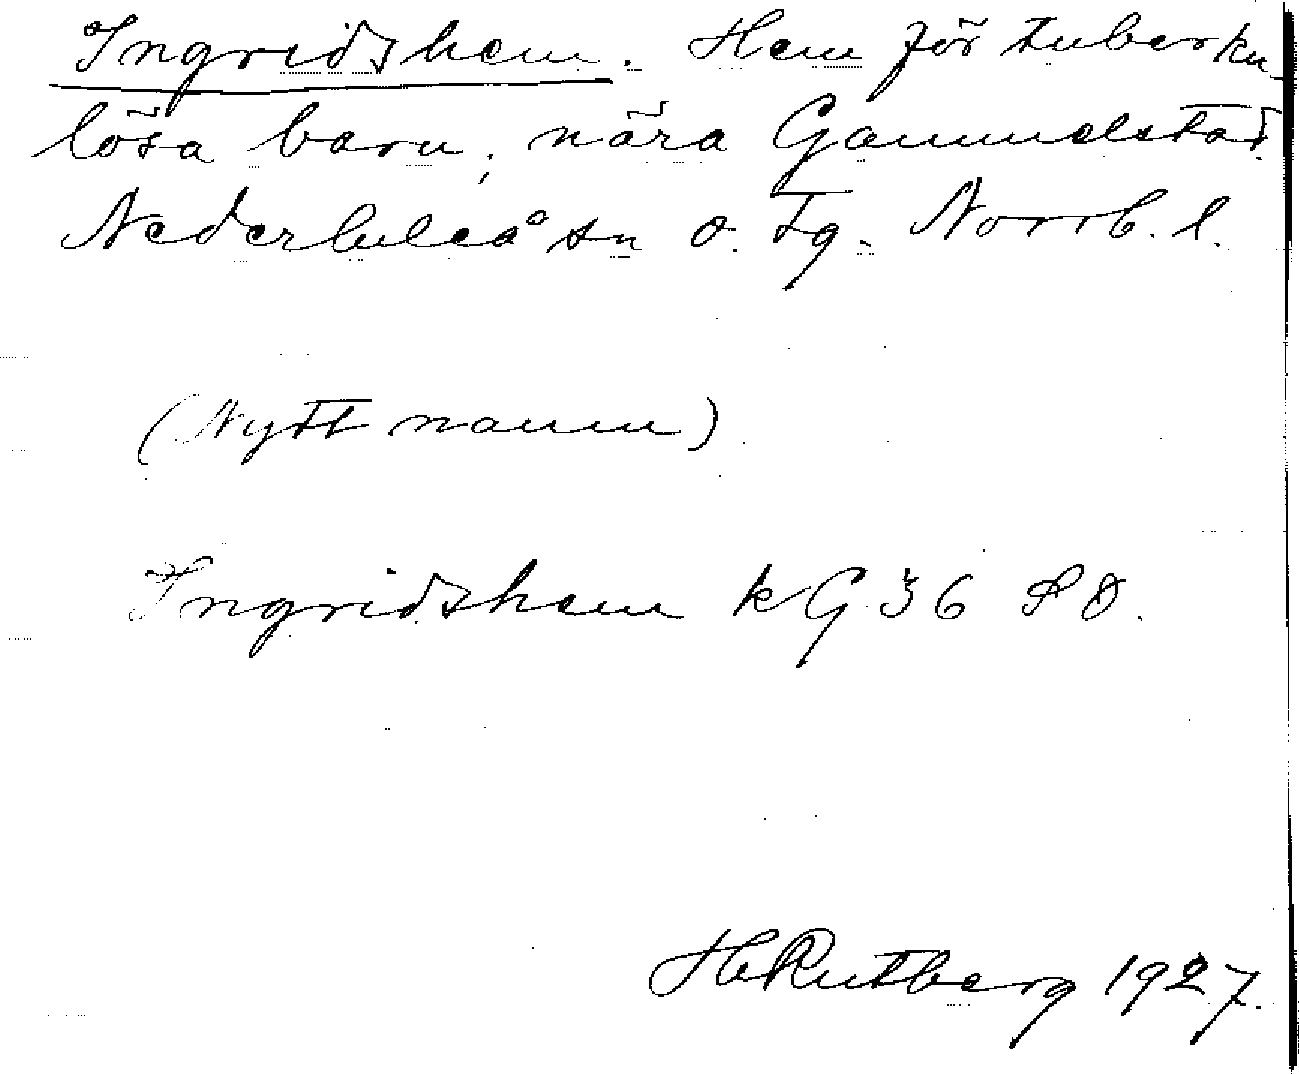 Ingridshem. Hem för tuberku
lösa barn, nära Gammelstad.
Nederluleå sn o. tg. Norrb. l.
(Nytt namn)
Ingridshem kG 36 SO.
H Rutberg 1927.